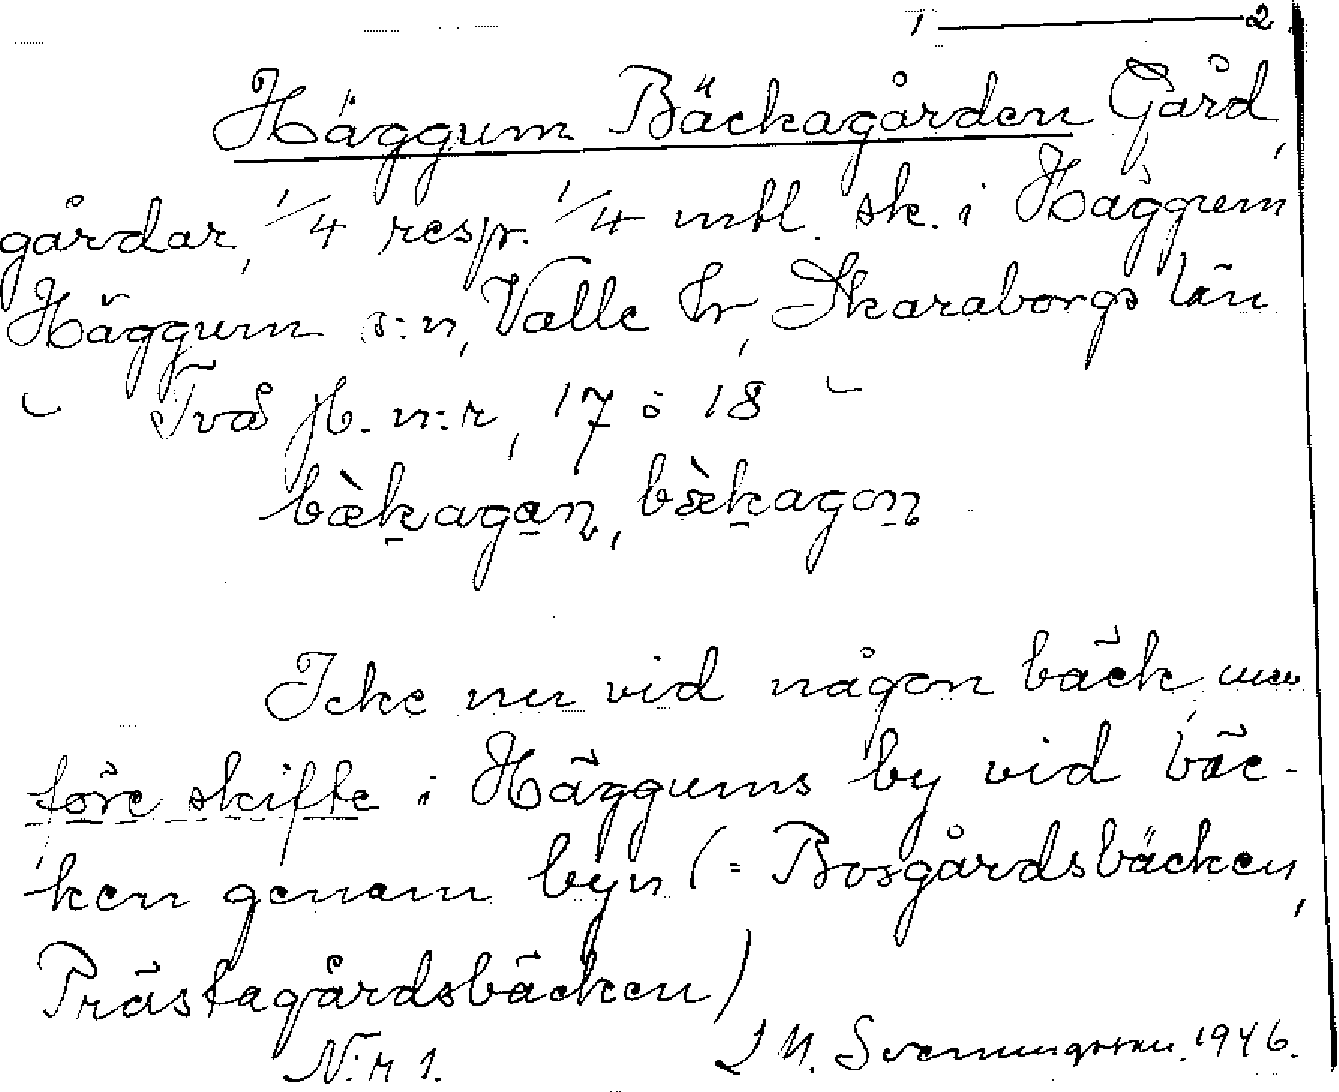 1 ——— 2
Häggum Bäckagården Gård,
gårdar, 1/4 resp. 1/4 mtl. sk. i Häggum
Häggum s:n, Valle hr, Skaraborgs län
Två jb. n:r, 17 o 18
bæ̀kagan, bæ̀kagon
Icke nu vid någon bäck, men
före skifte i Häggums by vid bäc-
ken genom byn (= Bosgårdsbäcken,
Prästagårdsbäcken)
N:r 1.
Svenningsson. 1946.